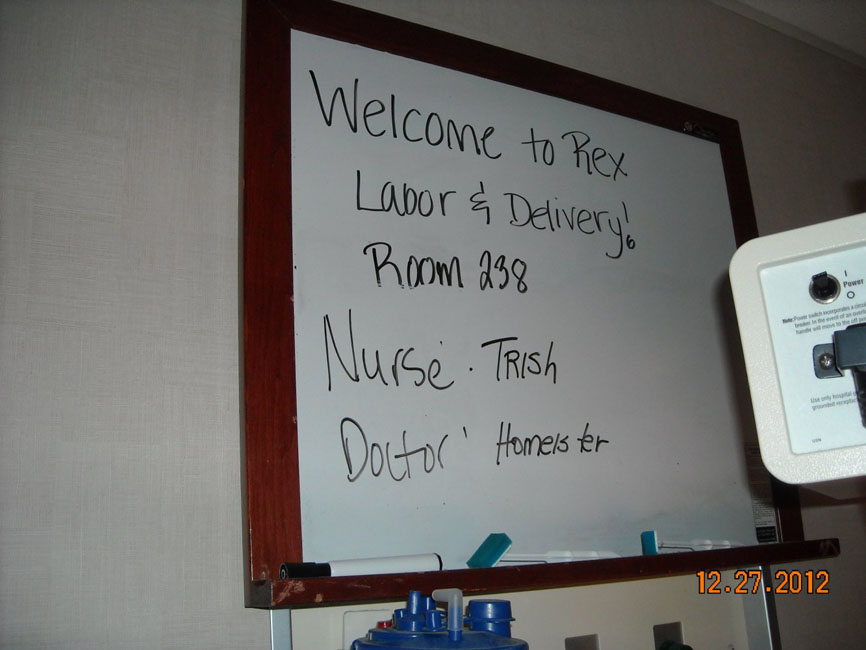 Welcome to Rex
Labor & Delivery!
Room 238
Nurse · TRISH
Doctor' Homeister
I
Power
O
Note: Power switch incorporates a circuit
breaker. In the event of an
handle will move to the off
Use only hospital
grounded
12.27.2012